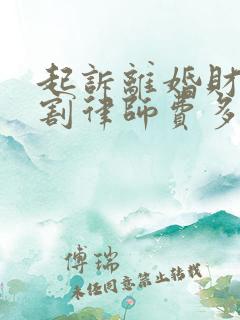 起訴離婚財
割律師費多
傅瑞
未经同意禁止转载